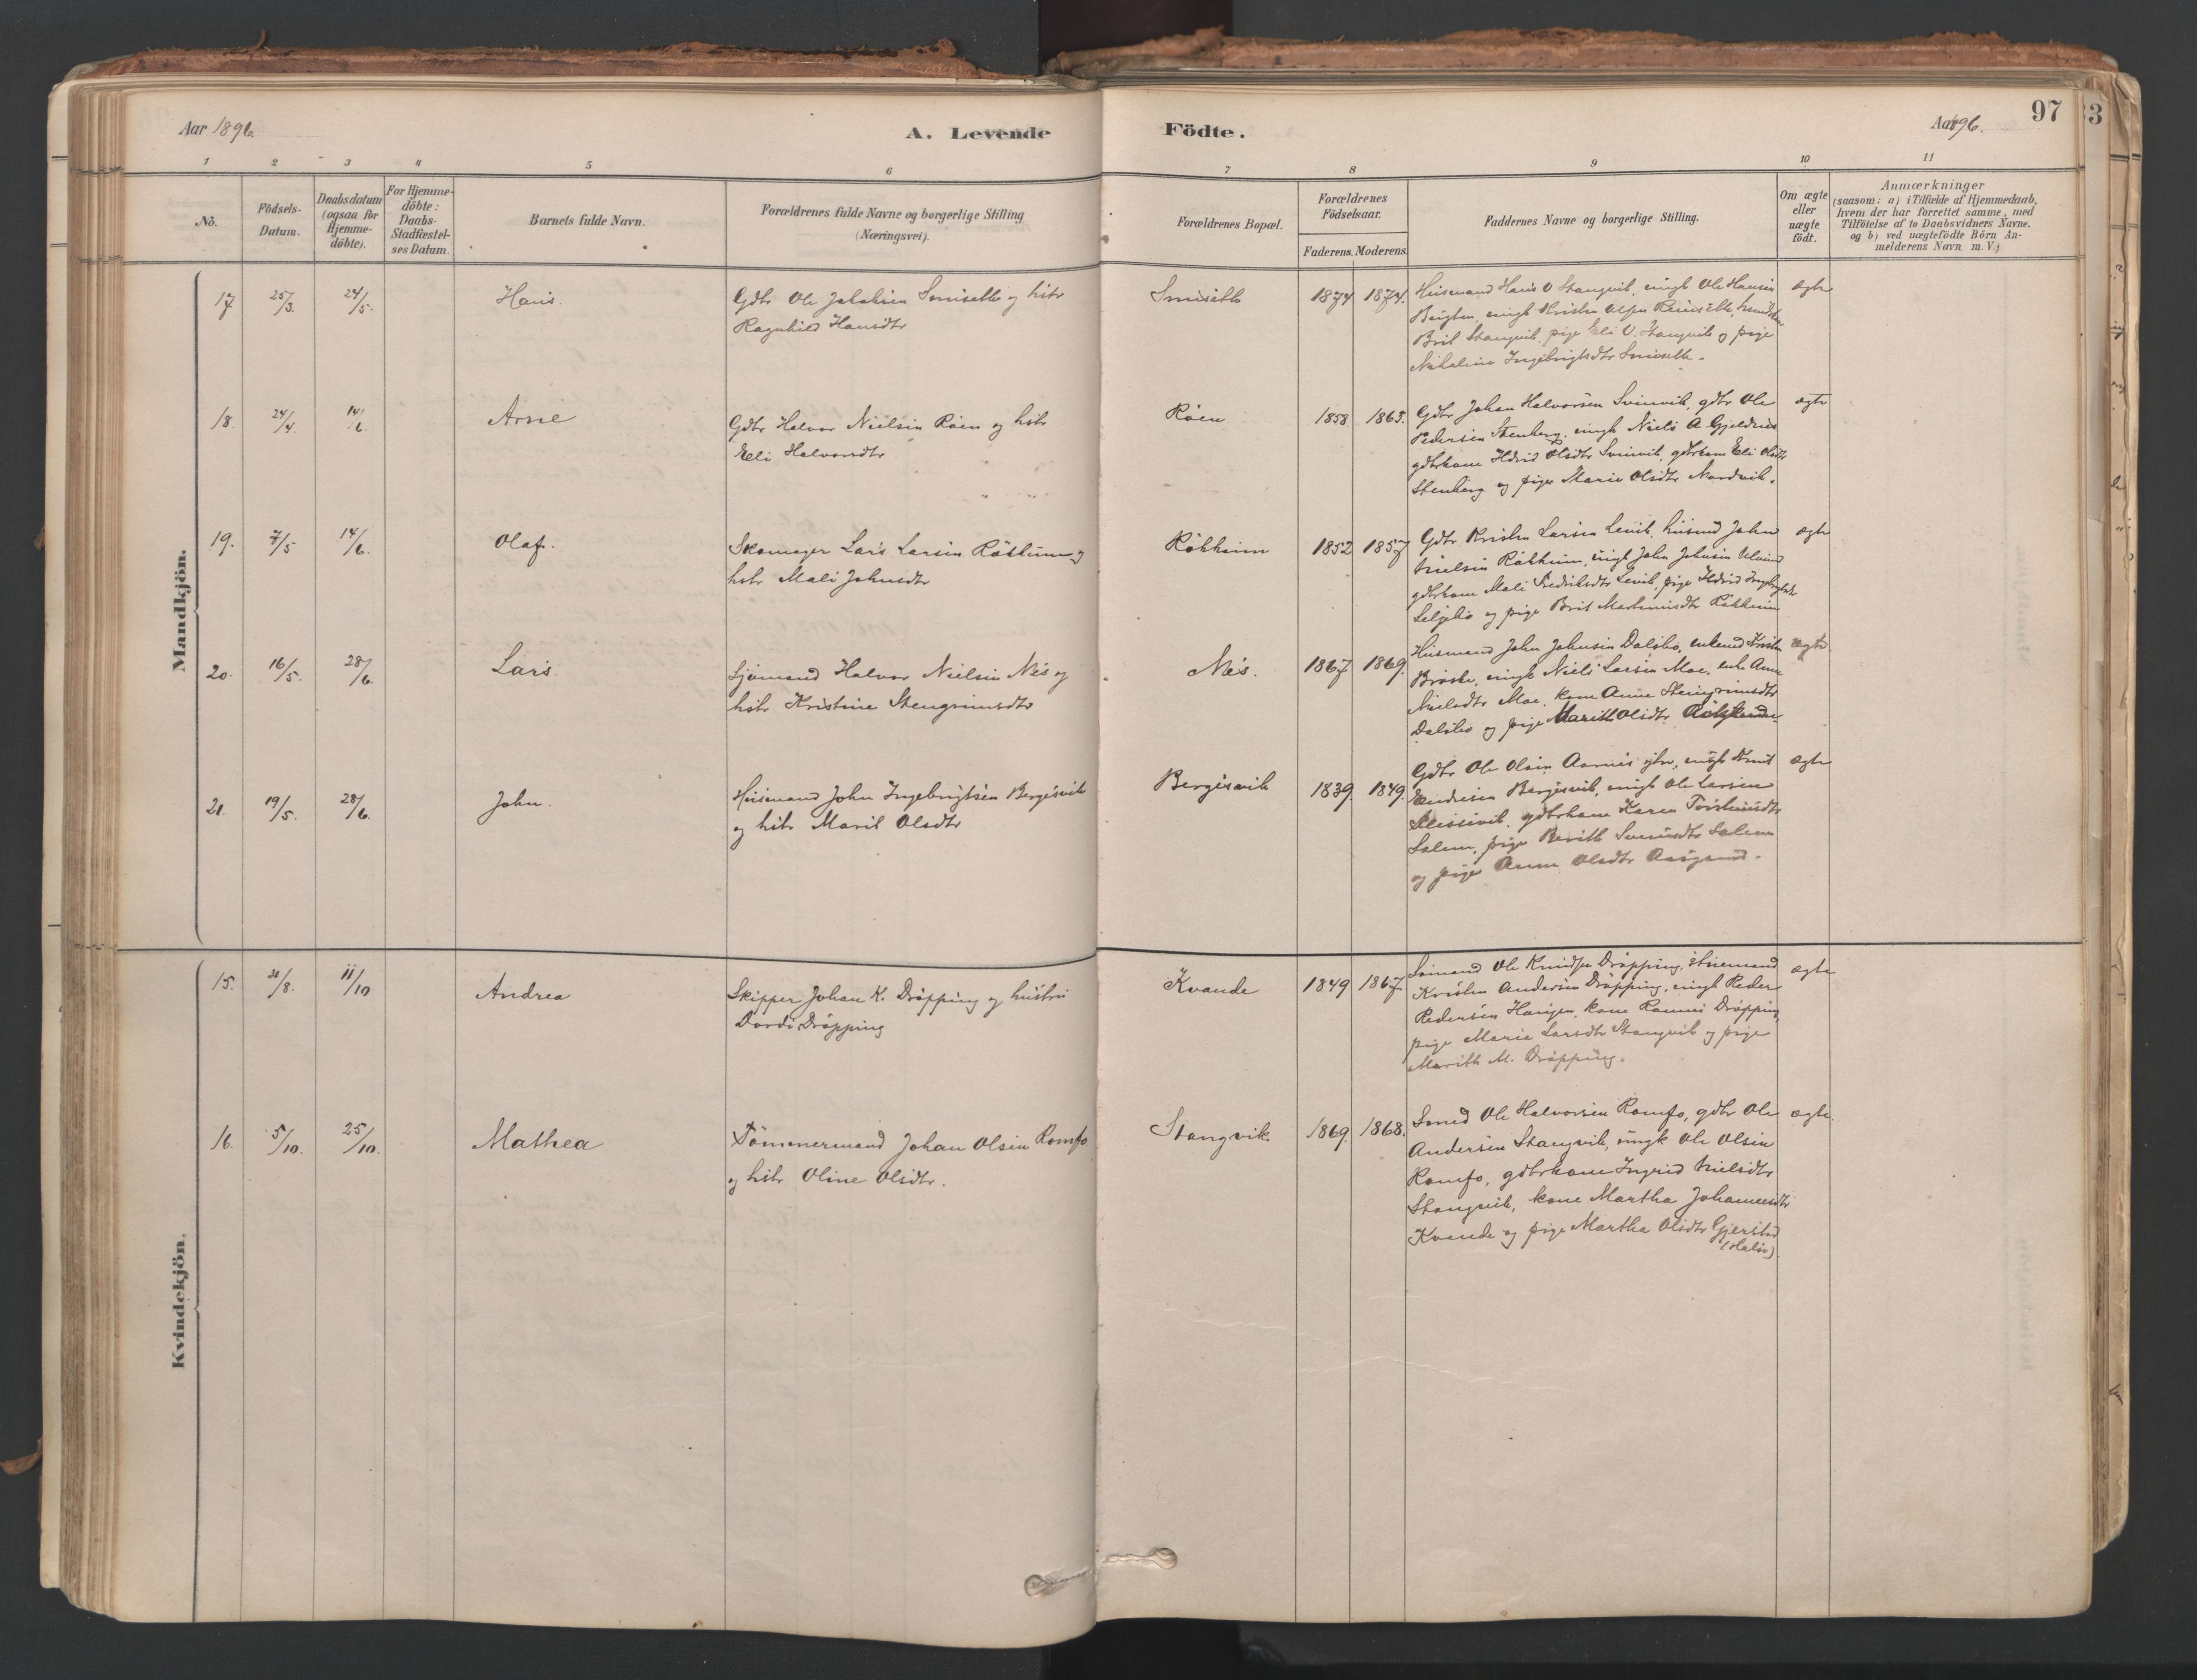 Aar 1896.
A. Levende
Födte.
Aar 1896.
97
1 2 3 4 5 6 7 8 9 10 11
No.
Födsels-
Datum.
Daabsdatum
(ogsaa for
Hjemme-
döbte).
For Hjemme-
döbte:
Daabs-
Stadfæstel-
ses Datum.
Barnets fulde Navn.
Forældrenes fulde Navne og borgerlige Stilling
(Næringsvei).
Forældrenes Bopæl.
Forældrenes
Födselsaar.
Faderens. Moderens.
Faddernes Navne og borgerlige Stilling.
Om ægte
eller
uægte
födt.
Anmærkninger
(saasom: a) i Tilfælde af Hjemmedaab,
hvem der har forrettet samme, med
Tilföielse af to Daabsvidners Navne.
og b) ved uægtefödte Börn An-
melderens Navn m. V.)
Mandkjön.
17 25/3. 24/5. Hans.
Gdbr Ole Johnsen Smiseth og hstr
Ragnhild Hansdtr
Smiseth 1874 1874.
Husmand Hans O Stangvik, ungk Ole Hansen
Brit Stangvik, pige Eli O. Stangvik og pige
Ingebrigtsdtr Smiseth.
ægte
18. 24/4. 14/6. Arne
Gdbr Halvor Nielsen Röen og hstr
Eli Halvorsdtr
Röen 1858 1863.
Gdbr Johan Halvorsen Svinvik, gdbr Ole
Pedersen Stenberg, ungk Niels A. Gjeldnes
gdbrkone Ildrid Olsdtr Svinvik, gdbrkone Eli Olsdtr
Stenberg og pige Marie Olsdtr Nordvik.
ægte
19. 7/5 14/6. Olaf.
Skomager Lars Larsen Rökkum og
hstr Mali Johnsdtr
Rökkum 1852 1857
Gdbr Kristen Larsen Levik, husmd John
Nielsen Rökkum, ungk John Johnsen Ulvund
gdbrkone Mali Fredriksdtr Levik, pige Ildrid Ingebrigtsdtr
og pige Brit Rökkum
ægte
20. 16/5. 28/6. Lars.
Sjömand Halvor Nielsen Nes og
hstr Kristine Stengrimsdtr
Nes. 1867 1869.
Husmand John Johnsen Dalsbö, enkemd Kristen
Bröske, ungk Niels Larsen Moe, enke Anne
Nielsdtr Moe, kone Anne Steingrimsdtr
Dalsbö og pige Marith Olsdtr
ægte
21. 19/5. 28/6. John.
Husmand John Ingebrigtsen Bergisvik
og hstr Marit Olsdtr
Bergisvik 1839. 1849.
Gdbr Ole Olsen Aarnes ytre, ungk Knut
Endresen Bergisvik, ungk Ole Larsen
gdbrkone Karen Torstensdtr
Salem, pige Berith Svensdtr Salem
og pige Anne Olsdtr
ægte
Kvindekjön.
15. 31/8. 11/10 Andrea
Skipper Johan K. Dröpping og hustru
Dordi Dröpping
Kvande 1849 1867
Sömand Ole Knudsen Dröpping, Husmand
Kristen Andersen Dröpping, ungk Peder
Pedersen Haugen, kone Ranni Dröpping
pige Marie Larsdtr Stangvik og pige
Marith M. Dröpping.
ægte
16. 5/10. 25/10. Mathea
Tömmermand Johan Olsen Romfo
og hstr Oline Olsdtr.
Stangvik 1869. 1868.
Smed Ole Halvorsen Romfo, gdbr Ole
Andersen Stangvik, ungk Ole Olsen
Romfo, gdbrkone Ingrid Nielsdtr
Stangvik, kone Martha Johannesdtr
Kvande og pige Martha Olsdtr Gjerstad
(Halse).
ægte.